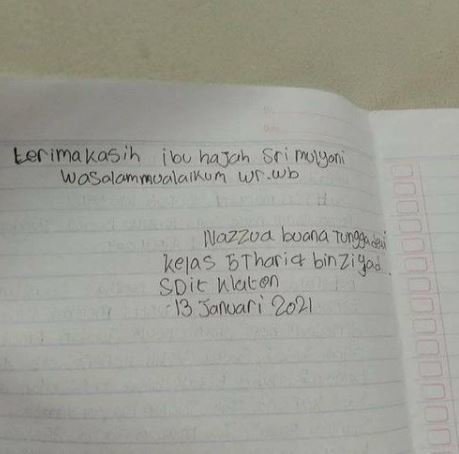 terimakasih ibu hajah Sri mulyani
wasalammualaikum wr.wb
Nazzua buana Tunggadewi
kelas 5 Thariq bin Ziyad
SDit Klaten
13 Januari 2021